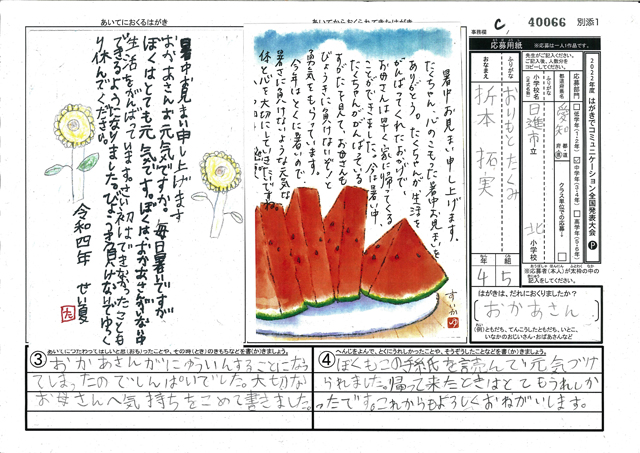 あいてにおくるはがき
あいてからおくられてきたはがき
事務欄
C
40066
別添1
暑中お見まい申し上げます
おかあさんお元気ですか。毎日暑いですが
ぼくはとても元気です。ぼくはおかあさんがいない中
生活をがんばっています。さい初はできなかったことも
できるようになりました。びょう気に負けないでゆっく
り休んでください。
令和四年 せい夏
た
暑中お見まい申し上げます。
たくちゃん、心のこもった暑中お見まいを
ありがとう。たくちゃんが生活を
がんばってくれているおかげで、
お母さんは早く家に帰ってくる
ことができました。今は暑い中、
たくちゃんががんばっている
すがたを見て、お母さんも
びょうきに負けないぞ!と
勇気をもらっています。
今年はとくに暑いので、
暑さに負けないような元気な
体と心を大切にしていきたいですね。
すいか
2022年度 はがきでコミュニケーション全国発表大会 P
応募用紙
※応募は一人1作品です。
先生がご記入ください。
ご記入後、人数分を
コピーしてください。
応募部門
低学年(1・2年)
中学年(3・4年)
高学年(5・6年)
都道府県名
愛知
都道府県
クラス単位での応募
小学校名
(正式名称)
日進市立
北
小学校
ふりがな
おりもと たくみ
おなまえ
折本 拓実
年
4
組
5
※応募者(本人)が太枠の中の
記入をしてください。
はがきは、だれにおくりましたか?
(おかあさん)
(例)ともだち、てんこうしたともだち、いとこ、
いなかのおじいさん・おばあさんなど
③ あいてにつたわってほしいと思(おも)ったことや、その時(とき)のきもちなどを書(か)きましょう。
おかあさんがにゅういんすることになっ
てしまったのでしんぱいでした。大切な
お母さんへ気持ちをこめて書きました。
④ へんじをよんで、とくにうれしかったことや、そうぞうしたことなどを書(か)きましょう。
ぼくもこの手紙を読んで元気づけ
られました。帰って来たときはとてもうれしか
ったです。これからもよろしくおねがいします。